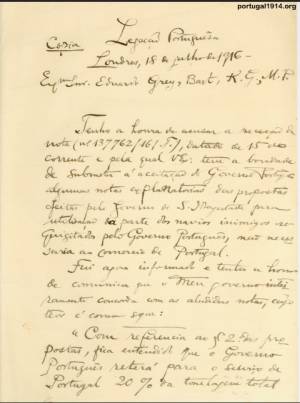 portugal1914.org
Copia
Legação Portuguesa
Londres, 18 de julho de 1916 -
Exmo Snr. Eduard Grey, Bart, K. G, M. P.
Tenho a honra de accusar a recepção da
nota (nº 137762/16/ F.), datada de 15 do
corrente e pela qual V. Ex. tem a bondade
de submeter á aceitação do Governo
algumas notas explanatorias das propostas
feitas pelo Governo de S. Magestade para
utilisação da parte dos navios inimigos re-
quisitados pelo Governo Português, não neces
saria ao comercio de Portugal.
Fui agora informado e tenho a honra
de comunicar que o Meu governo intei
ramente concorda com as aludidas notas, cujo
teor é como segue:
" Com referencia ao § 2 das pro
postas, fica entendido que o Governo
Português reterá para o serviço de
Portugal 20% da tonelagem total